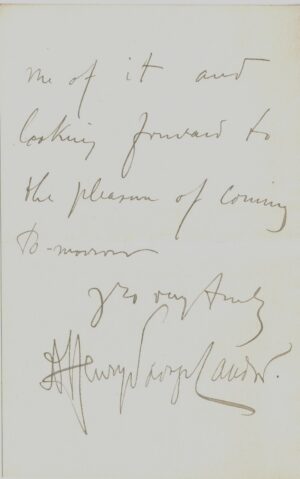 me of it and
looking forward to
the pleasure of coming
to-morrow
yrs very truly
A Henry Savage Landor.